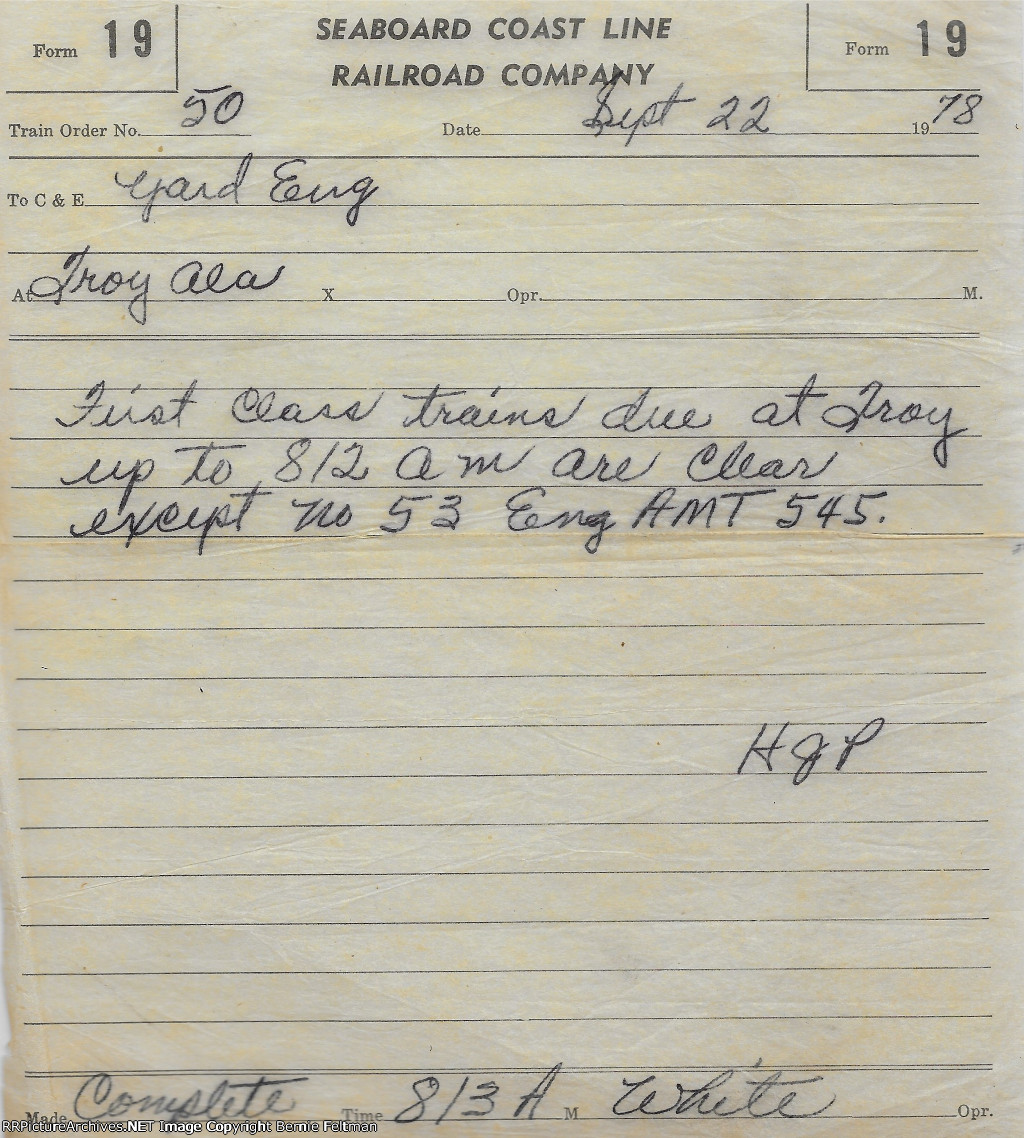 Form 19
SEABOARD COAST LINE
RAILROAD COMPANY
Form 19
Train Order No. 50 Date Sept 22 1978
To C & E Yard Eng
At Troy Ala X Opr. M.
First Class trains due at Troy
up to 812 am are clear
except no 53 Eng AMT 545.
HJP
Made Complete Time 813 A M White Opr.
RRPictureArchives.NET Image Copyright Bernie Feltman